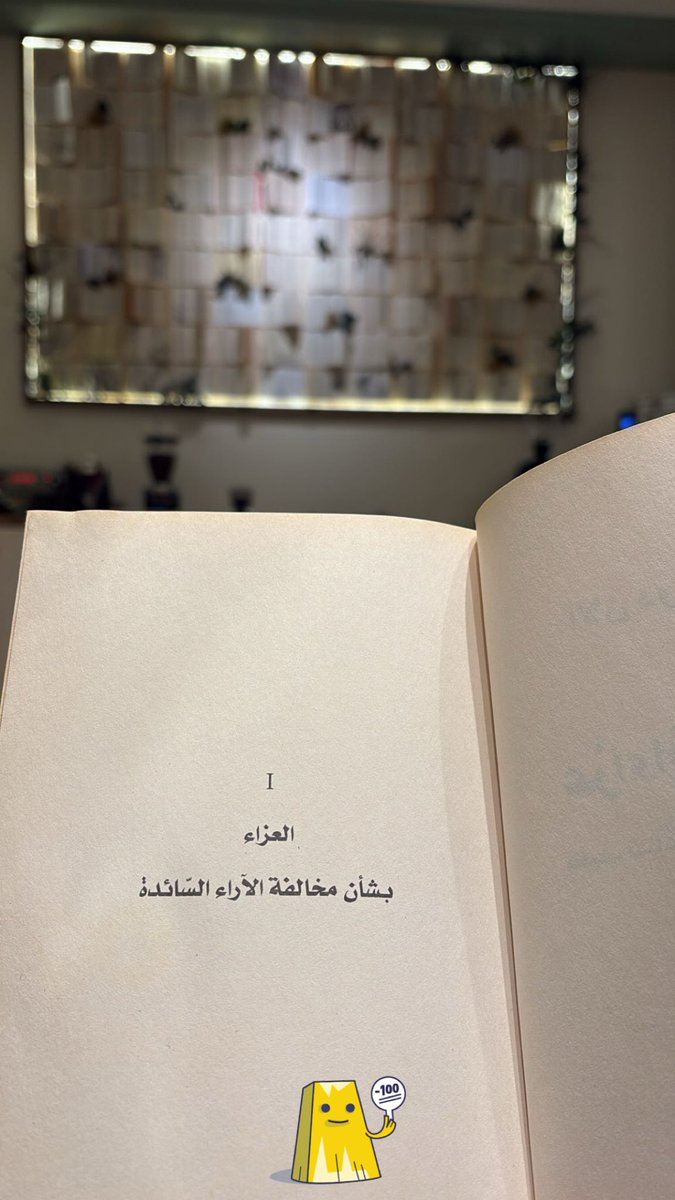 I
العزاء
بشأن مخالفة الآراء السّائدة
-100